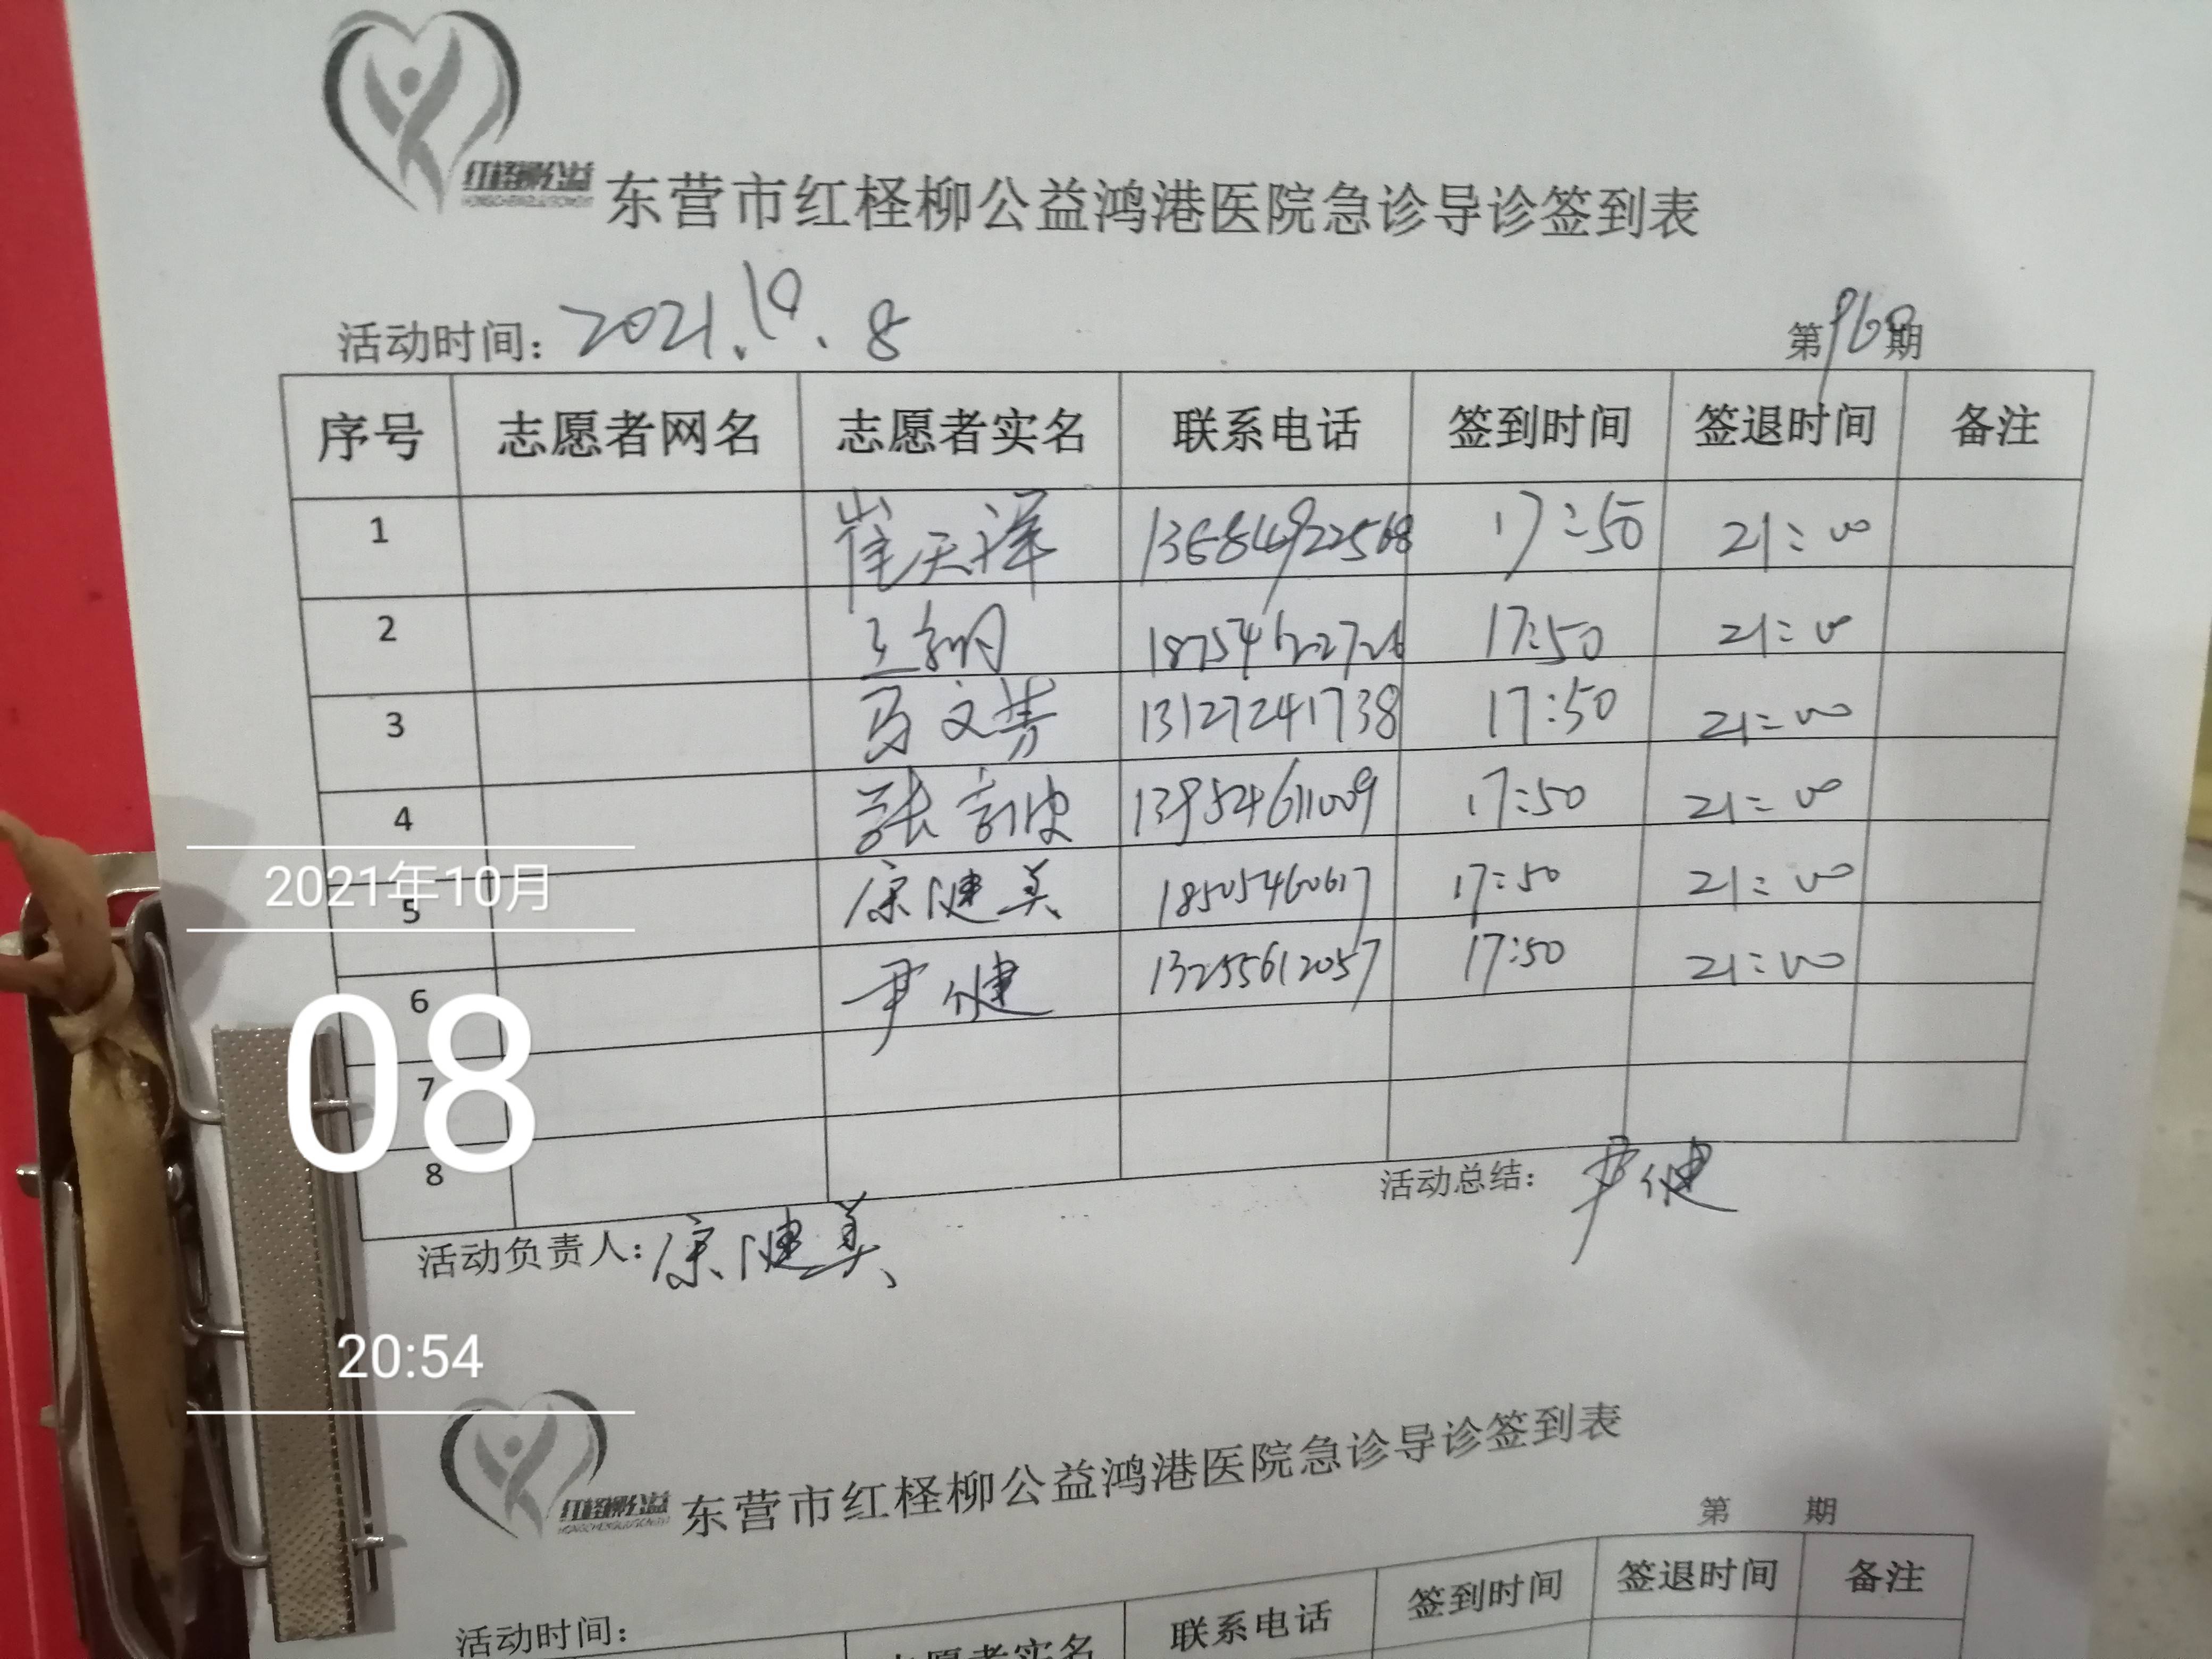 红柽柳公益
HONGCHENGLIUGONGYI
东营市红柽柳公益鸿港医院急诊导诊签到表
活动时间：2021.10.8 第960期
序号 志愿者网名 志愿者实名 联系电话 签到时间 签退时间 备注
1 崔天祥 13684922568 17:50 21:00
2 18754622726 17:50 21:00
3 马文芳 13127241738 17:50 21:00
4 张 波 13954611009 17:50 21:00
5 康健美 18505460617 17:50 21:00
6 尹健 13255612057 17:50 21:00
7
8
活动负责人：康健美 活动总结：尹健
2021年10月
08
20:54
红柽柳公益
HONGCHENGLIUGONGYI
东营市红柽柳公益鸿港医院急诊导诊签到表
第 期
活动时间：
志愿者实名 联系电话 签到时间 签退时间 备注